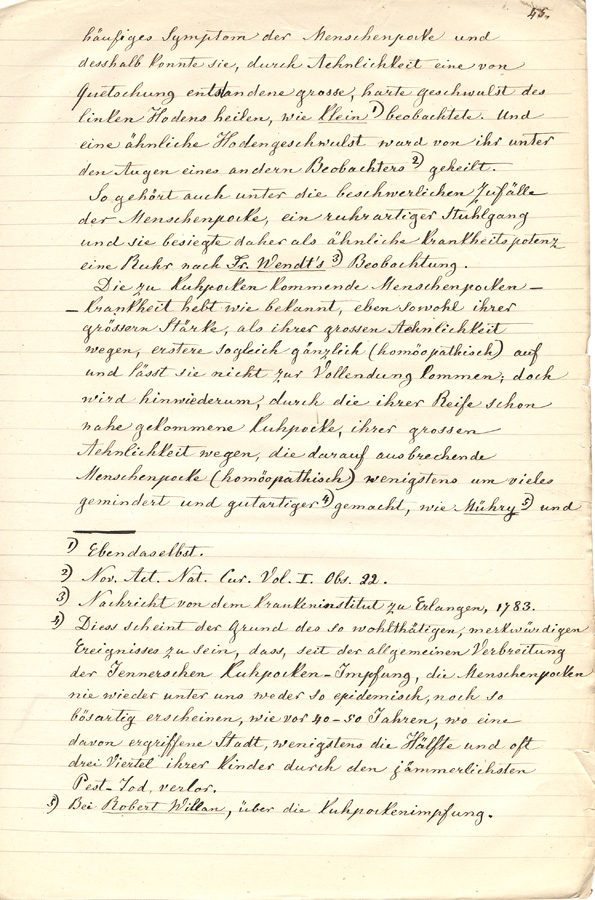 45.
häufiges Symptom der Menschenpocke und
desshalb konnte sie, durch Aehnlichkeit eine von
Quetschung entstandene grosse, harte geschwulst des
linken Hodens heilen, wie Klein 1) beobachtete. Und
eine ähnliche Hodengeschwulst ward von ihr unter
den Augen eines andern Beobachters 2) geheilt.
So gehört auch unter die beschwerlichen Zufälle
der Menschenpocke, ein ruhrartiger Stuhlgang
und sie besiegte daher als ähnliche Krankheitspotenz
eine Ruhr nach Fr. Wendt's 3) Beobachtung.
Die zu Kuhpocken kommende Menschenpocken-
-Krankheit hebt wie bekannt, eben sowohl ihrer
grössern Stärke, als ihrer grossen Aehnlichkeit
wegen, erstere sogleich gänzlich (homöopathisch) auf
und lässt sie nicht zur Vollendung kommen; doch
wird hinwiederum, durch die ihrer Reife schon
nahe gekommene Kuhpocke, ihrer grossen
Aehnlichkeit wegen, die darauf ausbrechende
Menschenpocke (homöopathisch) wenigstens um vieles
gemindert und gutartiger 4) gemacht, wie Mühry 5) und
1) Ebendaselbst.
2) Nov. Act. Nat. Cur. Vol. I. Obs. 22.
3) Nachricht von dem Krankeninstitut zu Erlangen, 1783.
4) Diess scheint der Grund des so wohlthätigen, merkwürdigen
Ereignisses zu sein, dass, seit der allgemeinen Verbreitung
der Jennerschen Kuhpocken-Impfung, die Menschenpocken
nie wieder unter uns weder so epidemisch, noch so
bösartig erscheinen, wie vor 40-50 Jahren, wo eine
davon ergriffene Stadt, wenigstens die Hälfte und oft
drei Viertel ihrer Kinder durch den jämmerlichsten
Pest-Tod, verlor.
5) Bei Robert Willan, über die Kuhpockenimpfung.